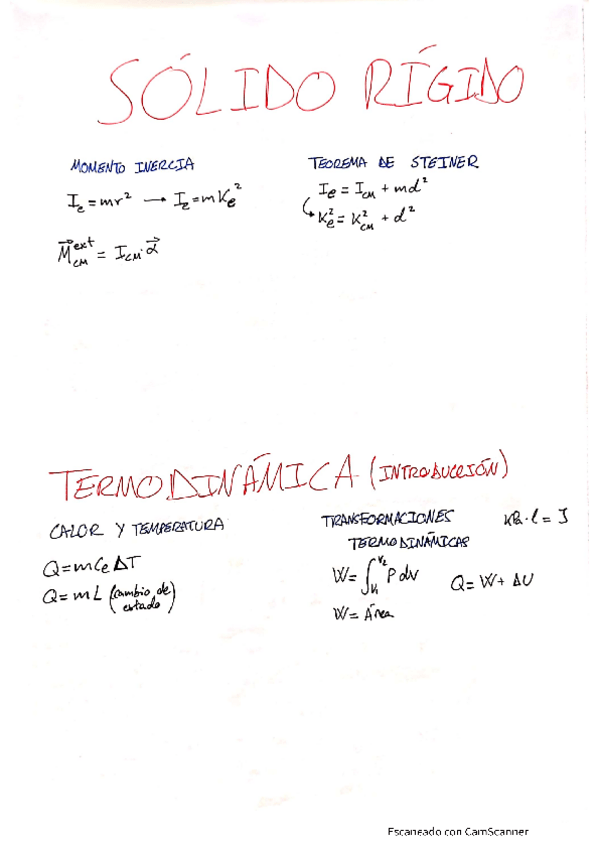 SÓLIDO RÍGIDO
MOMENTO INERCIA
I_e = mr² → I_e = mK_e²
M⃗_CM^ext = I_CM · α⃗
TEOREMA DE STEINER
I_e = I_CM + md²
K_e² = K²_CM + d²
TERMODINÁMICA (INTRODUCCIÓN)
CALOR Y TEMPERATURA
Q = m Ce ΔT
Q = m L (cambio de
estado)
TRANSFORMACIONES
TERMODINÁMICAS
W = ∫_{V₁}^{V₂} P dV
W = Área
Q = W + ΔU
KPa · l = J
Escaneado con CamScanner